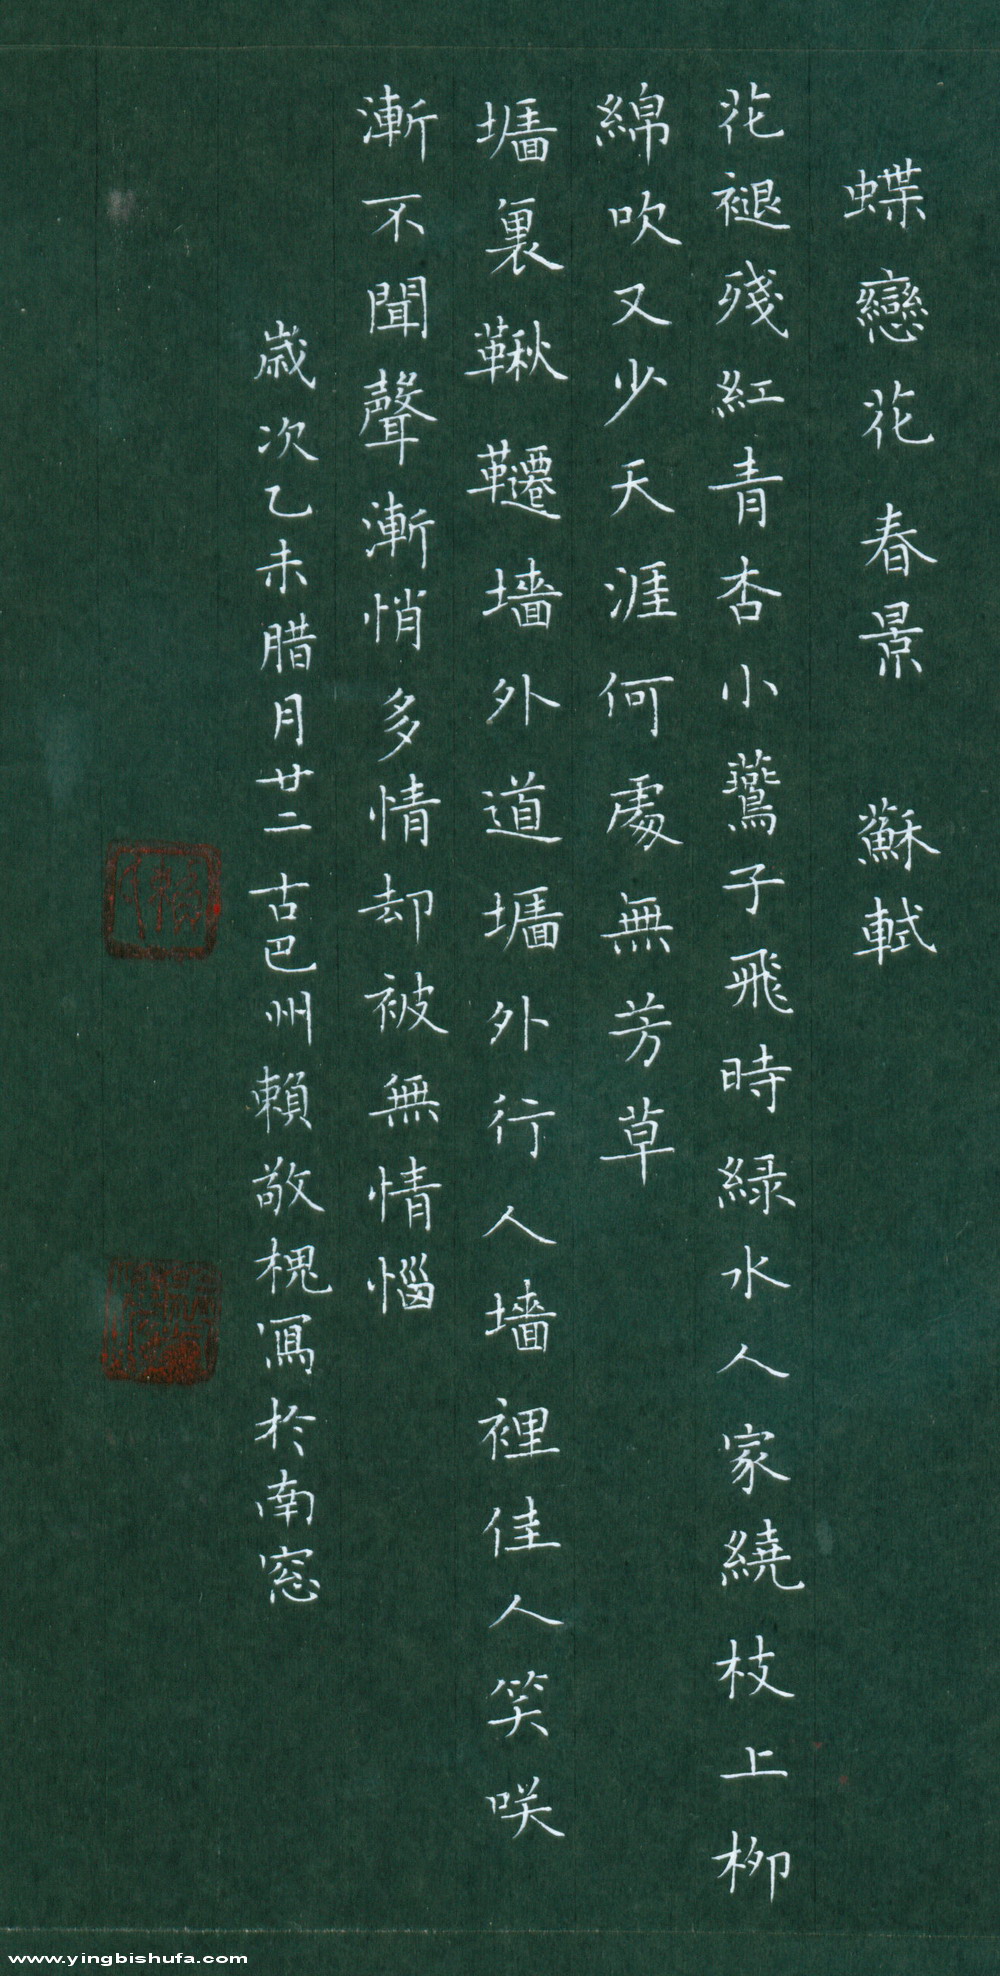 蝶戀花春景 蘇軾
花褪殘紅青杏小鷰子飛時緑水人家繞枝上柳
綿吹又少天涯何處無芳草
墻裏鞦韆墻外道墻外行人墻裡佳人笑咲
漸不聞聲漸悄多情却被無情惱
歲次乙未腊月廿二古巴州賴敬槐寫於南窓
www.yingbishufa.com